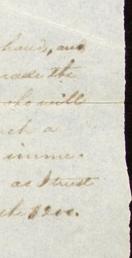 hand, and
made the
who will
such a
imme-
as I trust